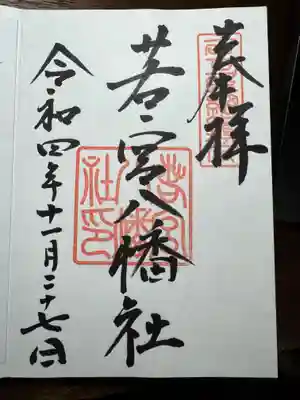 奉拝
若宮八幡社
令和四年十一月二十七日